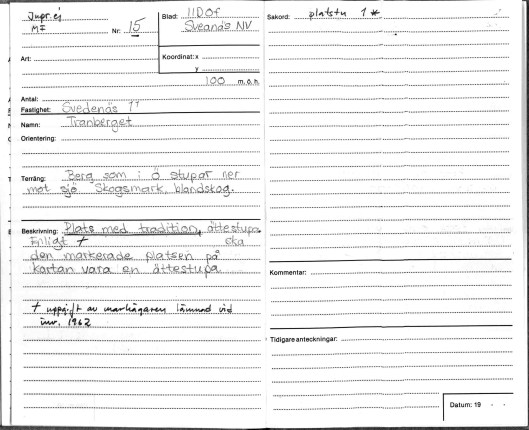 Jupr. ej
MF
Nr: 15
Blad: 11D0f
Sveanäs NV
Art:
Koordinat: x
y
100 m.ö.h.
Antal:
Fastighet: Svedenäs 1¹
Namn: Tranberget
Orientering:
Terräng: Berg som i ö stupar ner
mot sjö. Skogsmark, blandskog.
Beskrivning: Plats med tradition, ättestupa.
Enligt + ska
den markerade platsen på
kartan vara en ättestupa.
+ uppgift av markägaren lämnad vid
inv. 1962
Sakord: platstu 1 *
Kommentar:
Tidigare anteckningar:
Datum: 19 - -